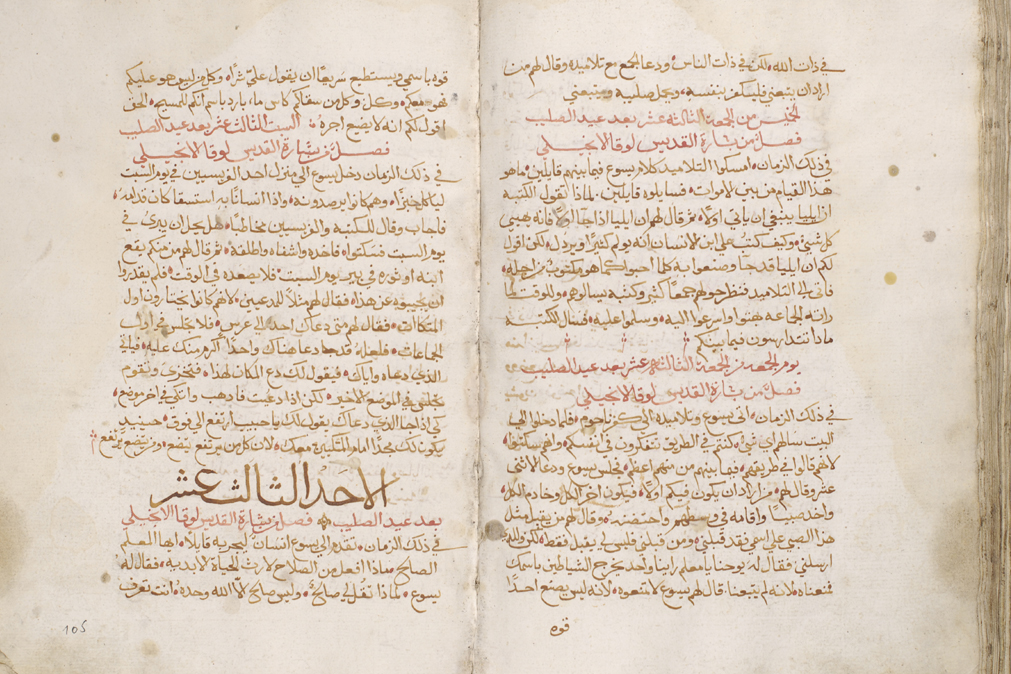 في ذات الله لكن في ذات الناس ودعا الجمع مع تلاميذه وقال لهم من
اراد ان يتبعني فليكفر بنفسه ويحمل صليبه ويتبعني
الخميس من الجمعة الثالثة عشر بعد عيد الصليب
فصل من بشارة القديس لوقا الانجيلي
في ذلك الزمان امسكوا التلاميذ كلام يسوع فيما بينهم قايلين ماهو
هذا القيام من بين الاموات فسايلوه قايلين لماذا تقول الكتبة
ان ايليا ينبغي ان ياتي اولًا ثم قال لهم ان ايليا اذا جا اولًا فانه يهيى
كل شي وكيف كتب على ابن الانسان انه يولم كثيرًا ويرذل لكن اقول
لكم ان ايليا قد جا وصنعوا به كلما احبوا كما هو مكتوب من اجله
فاتى الى التلاميذ فنظر حولهم جمعًا كثير وكتبة يسالوهم وللوقت لما
راته الجماعه بهتوا واسرعوا اليه وسلموا عليه فسال للكتبة
ماذا تتدارسون فيما بينكم
يوم الجمعه من الجمعة الثالثة عشر بعد عيد الصليب
فصل من بشارة القديس لوقا الانجيلي
في ذلك الزمان اتى يسوع وتلاميذه الى كفرناحوم فلما دخلوا الى
البيت سالهم اي شي كنتم في الطريق تتفكرون في انفسكم وانهم سكتوا
لانهم قالوا في طريقهم فيما بينهم من منهم اعظم فجلس يسوع ودعا الاثنى
عشر وقال لهم من اراد ان يكون فيكم اولًا فيكون اخر الكل وخادم الكل
واخذ صبيًا واقامه في وسطهم واحتضنه وقال لهم من يقبل مثل
هذا الصبي على اسمي فقد قبلني ومن قبلني فليس لي يقبل فقط لكن والذي
ارسلني فقال له يوحنا يامعلم راينا واحد يخرج الشياطين باسمك
فمنعناه لانه لم يتبعنا قال لهم يسوع لا تمنعوه لانه ليس يصنع احدًا
قوه
قوه باسمي ويستطيع سريعًا ان يقول علي شرًا وكل من ليس هو عليكم
فهو معكم وكل من سقاكم كاس ماء بارد باسم انكم للمسيح الحق
اقول لكم انه لا يضيع اجره السبت الثالث عشر بعد عيد الصليب
فصل من بشارة القديس لوقا الانجيلي
في ذلك الزمان دخل يسوع الى منزل احد الفريسيين في يوم السبت
لياكل خبزًا وهم كانوا يرصدونه واذا انسانًا به استسقا كان قدامه
فاجاب وقال للكتبة والفريسيين مخاطبًا هل يحل ان يبرئ في
يوم السبت فسكتوا فاخذه واشفاه واطلقه ثم قال لهم من منكم يقع
ابنه او ثوره في بير يوم السبت فلا يصعده في الوقت فلم يقدروا
ان يجيبوه عن هذا فقال لهم مثلًا للمدعيين لانهم كانوا يختارون اول
المتكاات فقال لهم متى دعاك احد الى عرس فلا تجلس في اول
الجماعات فلعله قد دعا هناك واحدًا اكرم منك عليه فياتي
الذي دعاه واياك فيقول لك دع المكان لهذا فتخزى وتقوم
تجلس في الموضع الاخير لكن اذا دعيت فاذهب واتكي في اخر موضع
كي اذا جا الذي دعاك يقول لك يا حبيب ارتفع الى فوق حينيذ
يكون لك مجدًا امام المتكيين معك لان كل من يرتفع يتضع ومن يتضع يرتفع
الاحد الثالث عشر
بعد عيد الصليب فصل من بشارة القديس لوقا الانجيلي
في ذلك الزمان تقدم الى يسوع انسان ليجربه قايلًا ايها المعلم
الصالح ماذا افعل من الصلاح لارث الحياة الابديه فقال له
يسوع لماذا تقل لي صالح وليس صالح الا الله وحده انت تعرف
105